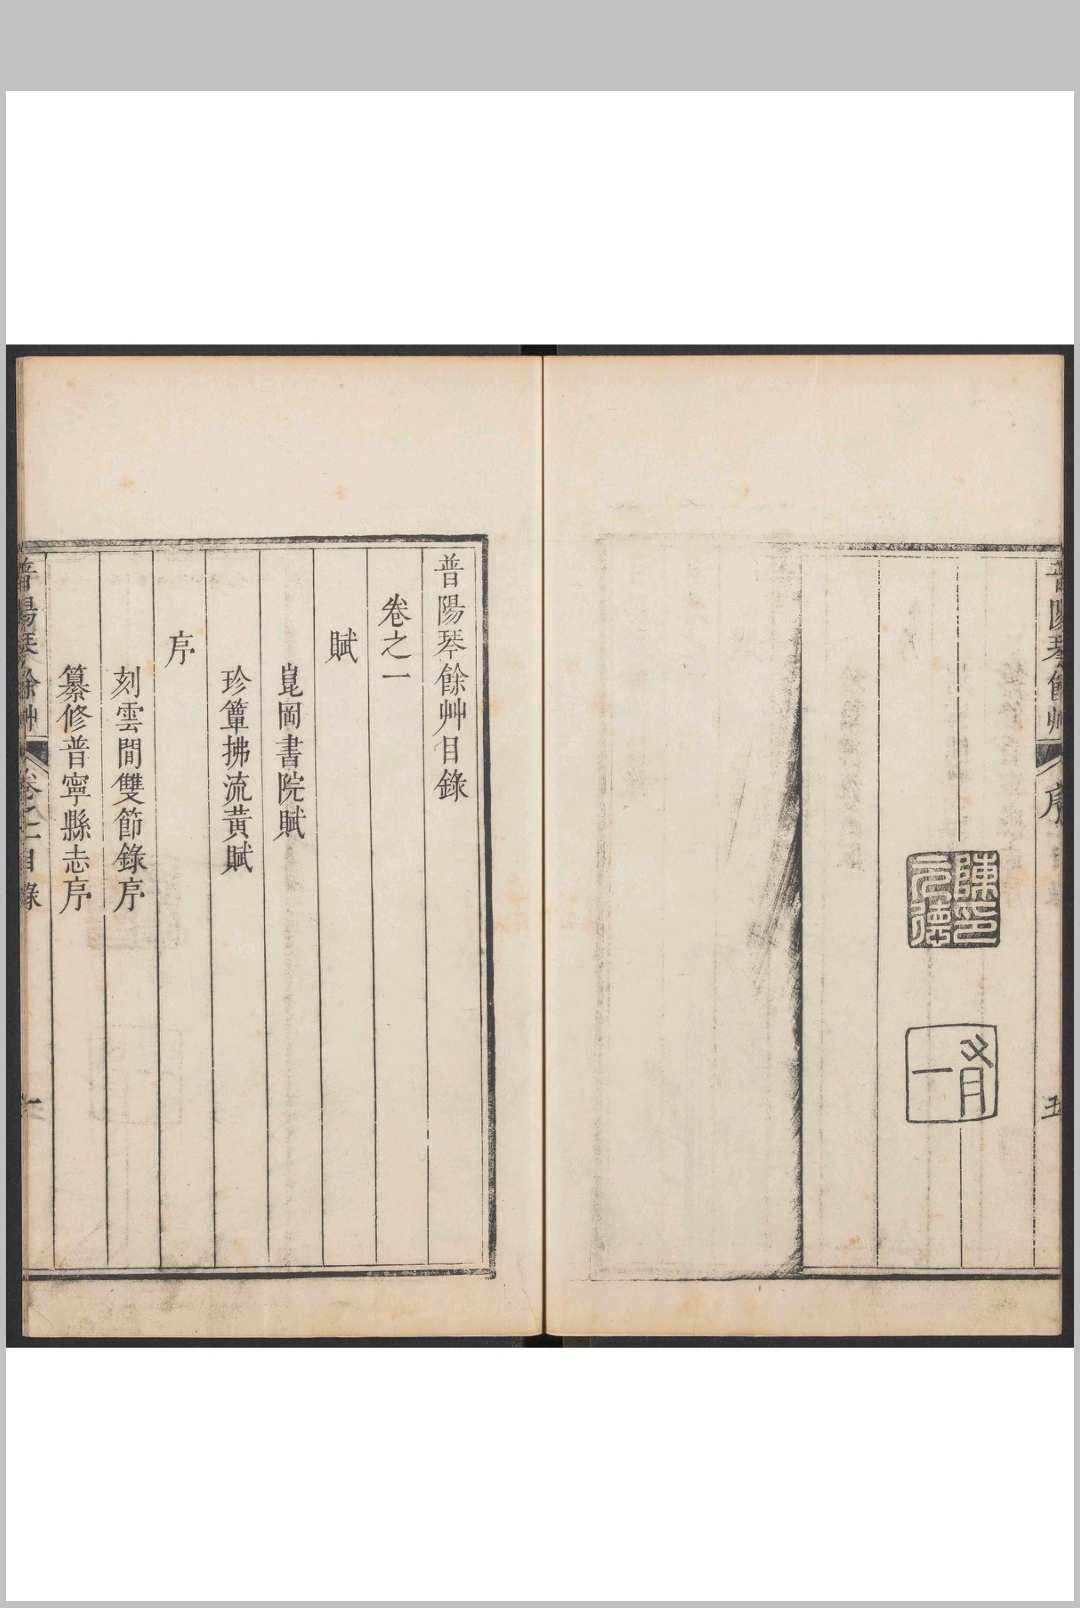 普陽琴餘艸
序
五
陳元德印
普陽琴餘艸目錄
卷之一
賦
崑岡書院賦
珍簟拂流黃賦
序
刻雲間雙節錄序
纂修普寧縣志序
普陽琴餘艸
卷之一目錄
一